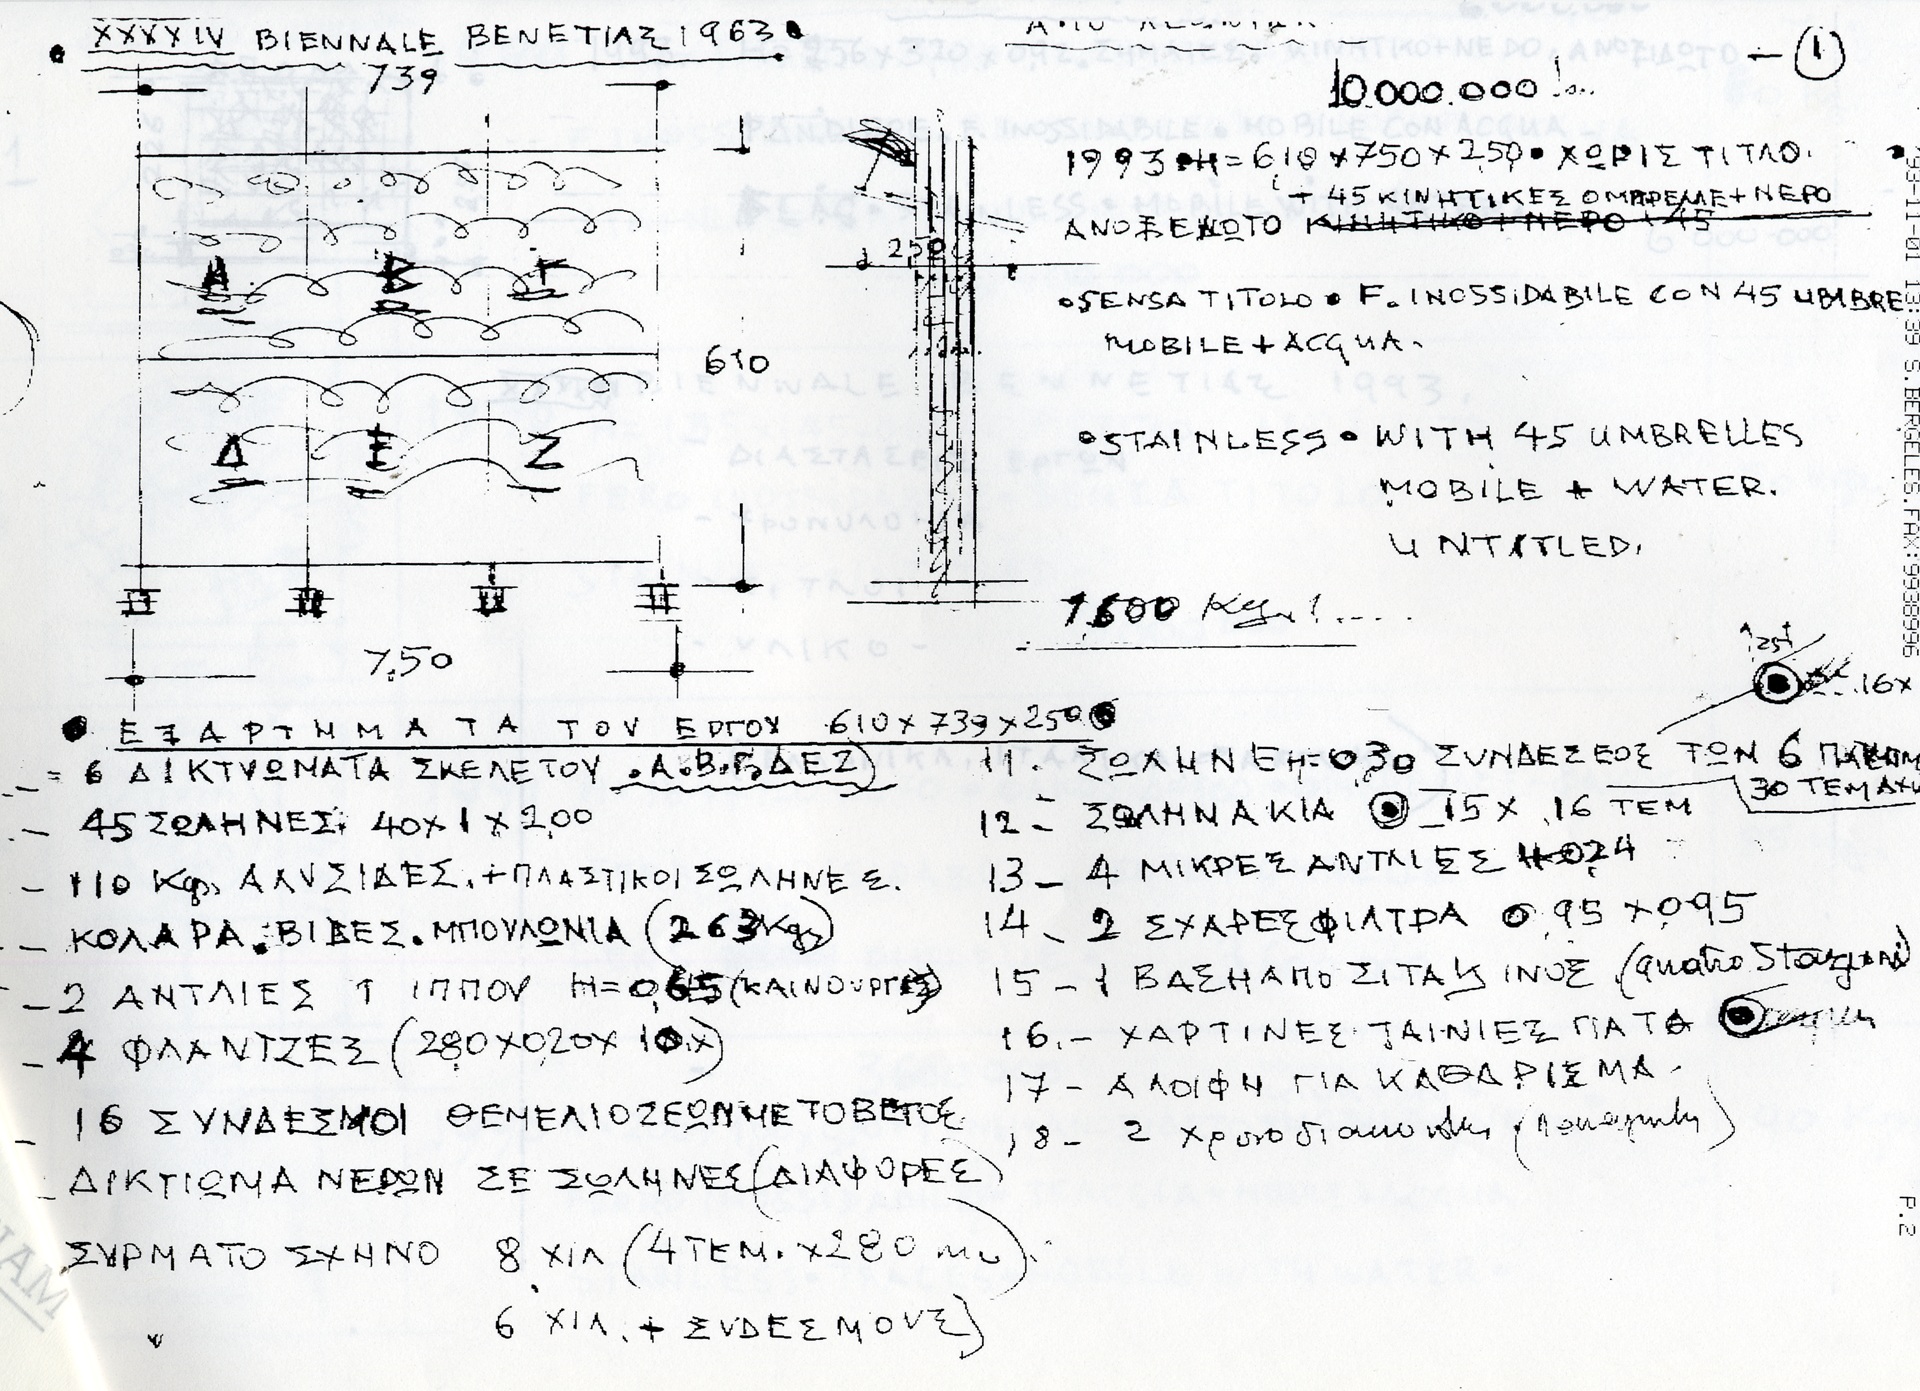 XXXXIV BIENNALE ΒΕΝΕΤΙΑΣ 1963
1
739
10.000.000
1993 • H = 610 x 750 x 250 • ΧΩΡΙΣ ΤΙΤΛΟ.
+ 45 ΚΙΝΗΤΙΚΕΣ ΟΜΠΡΕΛΕ + ΝΕΡΟ
ΑΝΟΞΕΙΔΩΤΟ ΚΙΝΗΤΙΚΟ + ΝΕΡΟ + 45
250
Α Β Γ
• SENSA TITOLO • F. INOSSIDABILE CON 45 UMBRE
MOBILE + ACQUA.
610
Δ Ε Ζ
• STAINLESS • WITH 45 UMBRELLES
MOBILE + WATER.
UNTITLED.
1.600 Kg. !....
7,50
25
.16 x
• ΕΞΑΡΤΗΜΑΤΑ ΤΟΥ ΕΡΓΟΥ 610 x 739 x 250 •
= 6 ΔΙΚΤΥΩΜΑΤΑ ΣΚΕΛΕΤΟΥ .Α.Β.Γ.ΔΕΖ)
- 45 ΣΩΛΗΝΕΣ. 40 x 1 x 2,00
- 110 Kg. ΑΛΥΣΙΔΕΣ. + ΠΛΑΣΤΙΚΟΙ ΣΩΛΗΝΕΣ.
- ΚΟΛΑΡΑ. ΒΙΔΕΣ. ΜΠΟΥΛΩΝΙΑ (263 Kg)
- 2 ΑΝΤΛΙΕΣ 1 ΙΠΠΟΥ H = 0,65 (ΚΑΙΝΟΥΡΓΙΕΣ)
- 4 ΦΛΑΝΤΖΕΣ (280 x 0,20 x 10.x)
- 16 ΣΥΝΔΕΣΜΟΙ ΘΕΜΕΛΙΟΖΕΩΝ ΜΕ ΤΟ ΒΕΤΟΣ
- ΔΙΚΤΙΩΜΑ ΝΕΡΩΝ ΣΕ ΣΩΛΗΝΕΣ (ΔΙΑΦΟΡΕΣ)
ΣΥΡΜΑΤΟΣΧΗΝΟ 8 ΧΙΛ (4 ΤΕΜ. x 280
6 ΧΙΛ. + ΣΥΔΕΣΜΟΥΣ)
11. ΣΩΛΗΝΕ H = 0,30 ΣΥΝΔΕΣΕΟΣ ΤΩΝ 6
30 ΤΕΜΑΧΙ
12 - ΣΩΛΗΝΑΚΙΑ 15 x .16 ΤΕΜ
13 - 4 ΜΙΚΡΕΣ ΑΝΤΛΙΕΣ H 0,24
14 - 2 ΣΧΑΡΕΣ ΦΙΛΤΡΑ 0,95 x 0,95
15 - 1 ΒΑΣΗ ΑΠΟ ΣΙΤΑ ΚΙΝΟΣ (quatro Stagioni)
16 - ΧΑΡΤΙΝΕΣ ΤΑΙΝΙΕΣ ΓΙΑ ΤΑ
17 - ΑΛΟΙΦΗ ΓΙΑ ΚΑΘΑΡΙΣΜΑ.
18 - 2 Χρονοδιακοπτες
'93-11-01 13:39 S.BERGELES.FAX:9938996
P.2